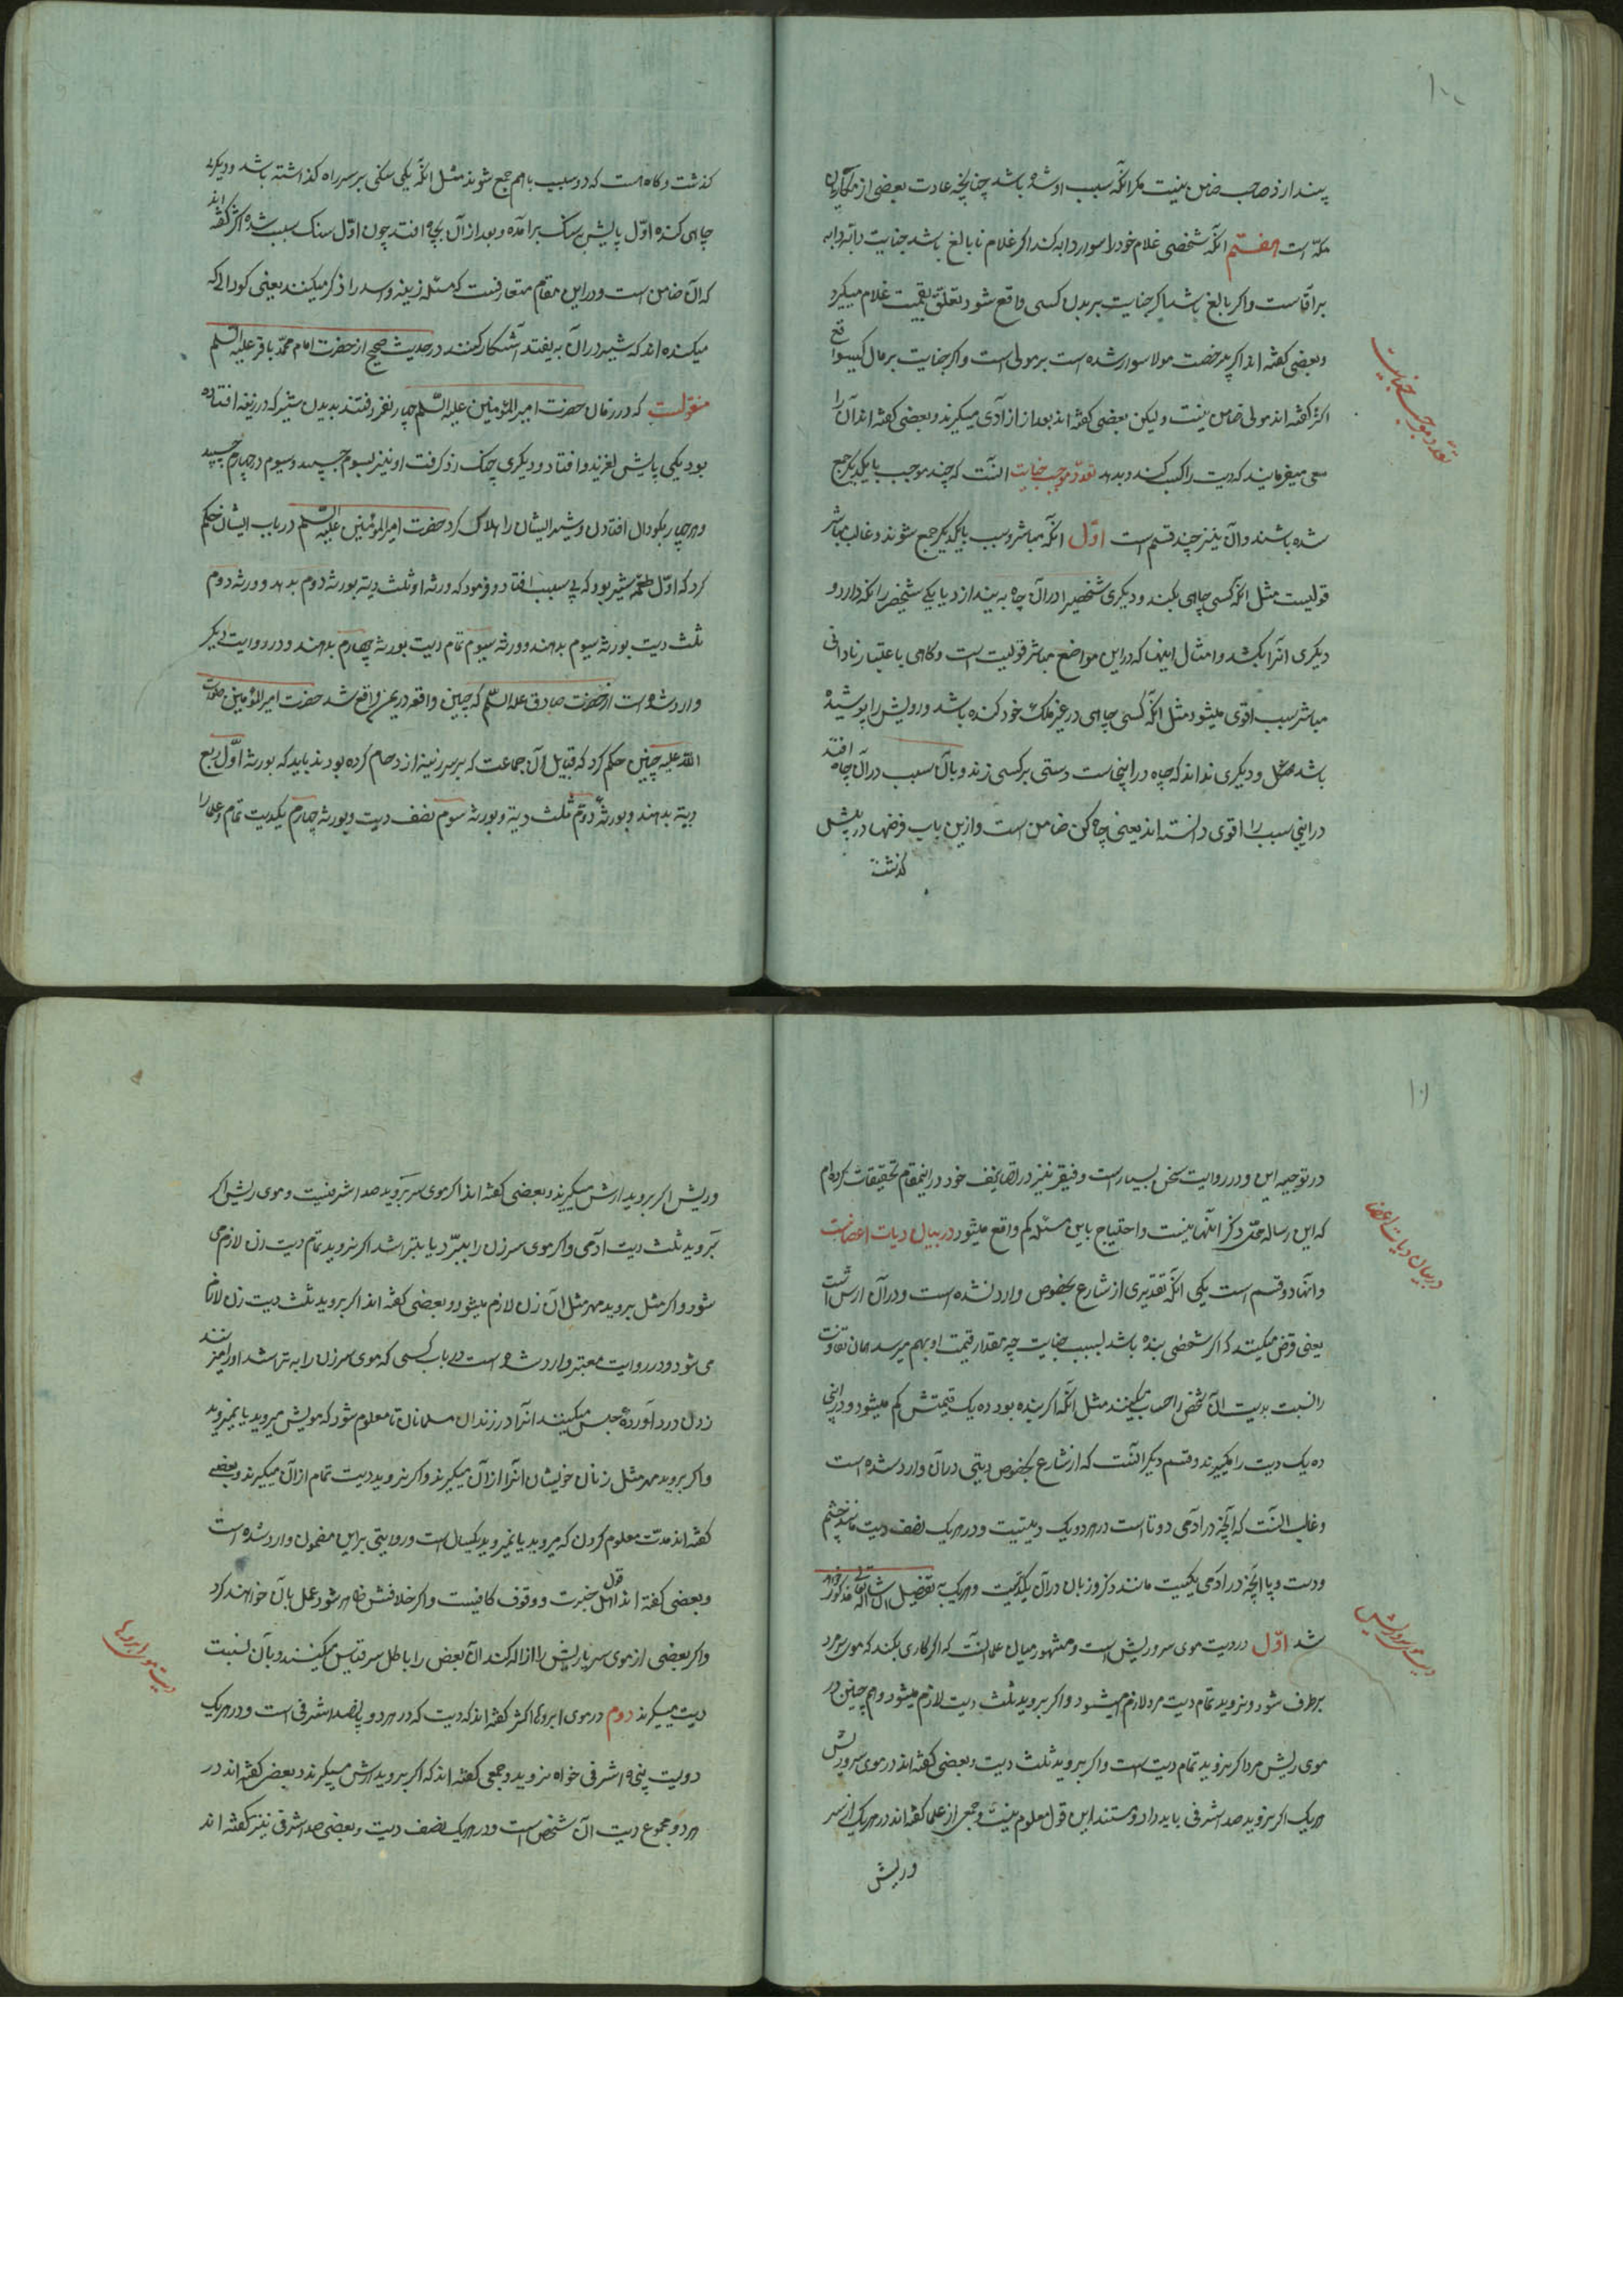 ۱۰۰
پندارد صاحب ضامن نیست مکر آنکه سبب او شده باشد چنانچه عادت بعضی از مکاریان
مکه است هفتم آنکه شخصی غلام خود را سوار دابه کند اکر غلام نابالغ باشد جنایت دابه
بر آقاست و اکر بالغ باشد اکر جنایت بر بدن کسی واقع شود تعلق بقیمت غلام میکیرد
و بعضی کفته اند اکر برخصت مولا سوار شده است بر مولی است و اکر جنایت بر مال کسی واقع
اکثر کفته اند مولی ضامن نیست ولیکن بعضی کفته اند بعد از آزادی میکیرند و بعضی کفته اند آن را
سعی میفرمایند که دیت را کسب کند و بدهد تعدد موجب جنایت آنست که چند موجب بایکدیکر جمع
شده باشند و آن نیز چند قسم است اول آنکه مباشر و سبب بایکدیکر جمع شوند و غالب مباشر
قویست مثل آنکه کسی چاهی بکند و دیکری شخصی را در آن چاه بیندازد یا یکی شخصی را نکه دارد و
دیکری آنرا بکشد و امثال اینها که در این مواضع مباشر قویست است و کاهی باعتبار نادانی
مباشر سبب اقوی میشود مثل آنکه کسی چاهی در غیر ملک خود کنده باشد و رویش را پوشیده
باشد و دیکری نداند که چاه در اینجاست دستی بر کسی زند و بآن سبب در آن چاه افتد
در اینجا سبب را اقوی دانسته اند یعنی چاه کن ضامن است و ازین باب فرضها در پیش
کذشت
تعدد موجب جنایت
کذشت و کاه است که دو سبب باهم جمع شوند مثل آنکه یکی سنکی بر سر راه کذاشته باشد و دیکری
چاهی کنده اول پایش بسنک برآمده و بعد از آن بچاه افتد چون اول سنک سبب شده اکثر کفته اند
که آن ضامن است و در این مقام متعارفست که مسئله زبیه و اسد را ذکر میکنند یعنی کودالی که
میکنده اند که شیر در آن بیفتد آشکار کنند در حدیث صحیح از حضرت امام محمد باقر علیه السلام
منقولست که در زمان حضرت امیرالمؤمنین علیه السلام چهار نفر رفتند بدیدن شیر که در زبیه افتاده
بود یکی پایش لغزید و افتاد و دیکری چنک زد کرفت او نیز بسیوم چسپید و سیوم در چهارم چسپید
و هر چهار بکودال افتادند و شیر ایشان را هلاک کرد حضرت امیرالمؤمنین علیه السلام در باب ایشان حکم
کرد که اول طعمه شیر بود که بی سبب افتاد و فرمود که ورثه او ثلث دیه بورثه دوم بدهد و ورثه دوم
ثلث دیت بورثه سیوم بدهند و ورثه سیوم تمام دیت بورثه چهارم بدهند و در روایت دیکر
وارد شده است از حضرت صادق علیه السلم که چنین واقعه در یمن واقع شد حضرت امیرالمؤمنین صلوات
الله علیه چنین حکم کرد که قبایل آن جماعت که بر سر زبیه ازدحام کرده بودند باید که بورثه اول ربع
دیه بدهند و بورثه دوم ثلث دیه و بورثه سوم نصف دیت و بورثه چهارم یکدیت تمام و علما را
۱۰۱
در توجیه این دو روایت سخن بسیار است و فقیر نیز در تصانیف خود در اینمقام تحقیقات کرده ام
که این رساله محل ذکر آنها نیست و احتیاج باین مسئله کم واقع میشود در بیان دیات اعضاست
و آنها دو قسم است یکی آنکه تقدیری از شارع بخصوص وارد نشده است و در آن ارش است
یعنی فرض میکنند که اکر شخصی بنده باشد بسبب جنایت چه مقدار قیمت او بهم میرسد همان تفاوت
را نسبت بدیت آن شخص را حساب میکنند مثل آنکه اکر بنده بود ده یک قیمتش کم میشود در اینجا
ده یک دیت را میکیرند و قسم دیکر آنست که از شارع بخصوص دیتی در آن وارد شده است
و غالب آنست که آنچه در آدمی دوتا است در هر دو یک دیتست و در هر یک نصف دیت مانند چشم
و دست و پا و آنچه در آدمی یکیست مانند ذکر و زبان در آن یکدیتست و هر یک بتفصیل انشاء الله تعالی مذکور خواهد
شد اول در دیت موی سر و ریش است و مشهور میان علما آنست که اکر کاری بکند که موی سر مرد
برطرف شود و نروید تمام دیت مرد لازم میشود و اکر بروید ثلث دیت لازم میشود و هم چنین در
موی ریش مرد اکر نروید تمام دیت است و اکر بروید ثلث دیت و بعضی کفته اند در موی سر و ریش
هر یک اکر نروید صد اشرفی باید داد و مستند این قول معلوم نیست و جمعی از علما کفته اند در هر یک از سر
وریش
در بیان دیات اعضا
دیت موی سر و ریش
و ریش اکر بروید ارش میکیرند و بعضی کفته اند اکر موی سر بروید صد اشرفیست و موی ریش اکر
بروید ثلث دیت آدمی و اکر موی سر زن را ببرد یا بتراشد اکر نروید تمام دیت زن لازم می
شود و اکر مثل بروید مهر مثل آن زن لازم میشود و بعضی کفته اند اکر بروید ثلث دیت زن لازم
می شود و در روایت معتبر وارد شده است در باب کسی که موی سر زن را بتراشد او را میزنند
زدن درد آورده حبس میکنند آنرا در زندان مسلمانان تا معلوم شود که مویش میروید یا نمیروید
و اکر بروید مهر مثل زنان خویشان آنرا از آن میکیرند و اکر نروید دیت تمام از آن میکیرند و بعضی
کفته اند مدت معلوم کردن که میروید یا نمیروید یکسال است و روایتی بر این مضمون وارد شده است
و بعضی کفته اند قول اهل خبرت و وقوف کافیست و اکر خلافش ظاهر شود عمل بآن خواهند کرد
و اکر بعضی از موی سر یا ریش را ازاله کند آن بعض را با کل سر قیاس میکنند و بآن نسبت
دیت میکیرند دوم در موی ابروها اکثر کفته اند که دیت که در هر دو پانصد اشرفی است و در هر یک
دویست پنجاه اشرفی خواه نروید و جمعی کفته اند که اکر بروید ارش میکیرند و بعضی کفته اند در
هر دو مجموع دیت آن شخص است و در هر یک نصف دیت و بعضی صد اشرفی نیز کفته اند
دیت موی ابروها